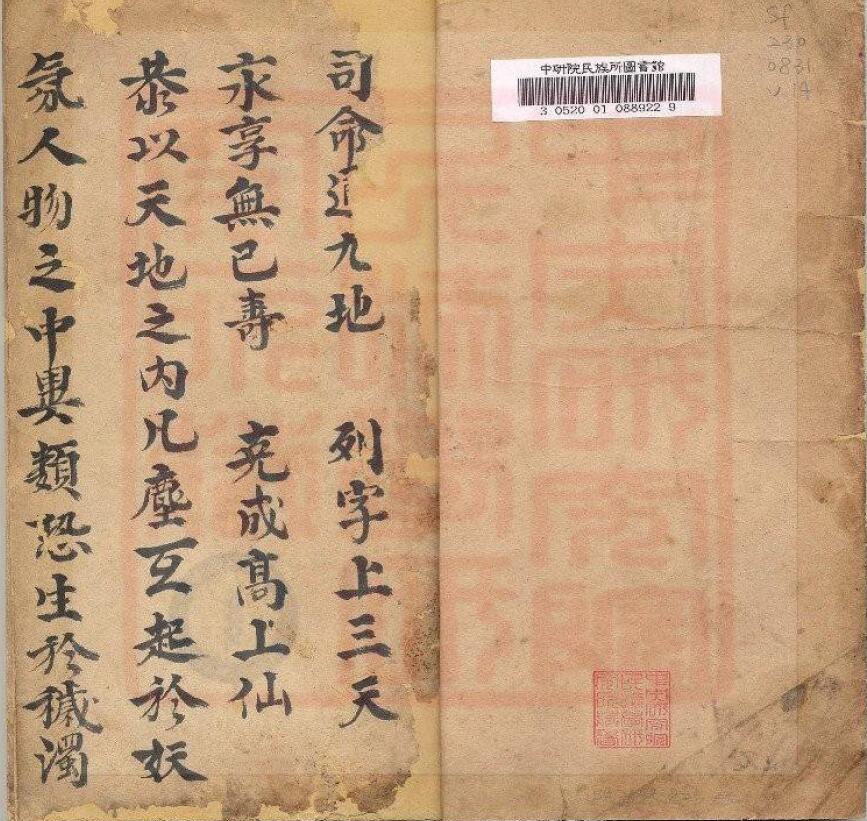 Sf
230
0831
v.14
中研院民族所圖書館
3 0520 01 088922 9
司命進九地 列字上三天
永享無已壽 克成高上仙
恭以天地之內凡塵互起於妖
氛人物之中異類恐生於穢濁